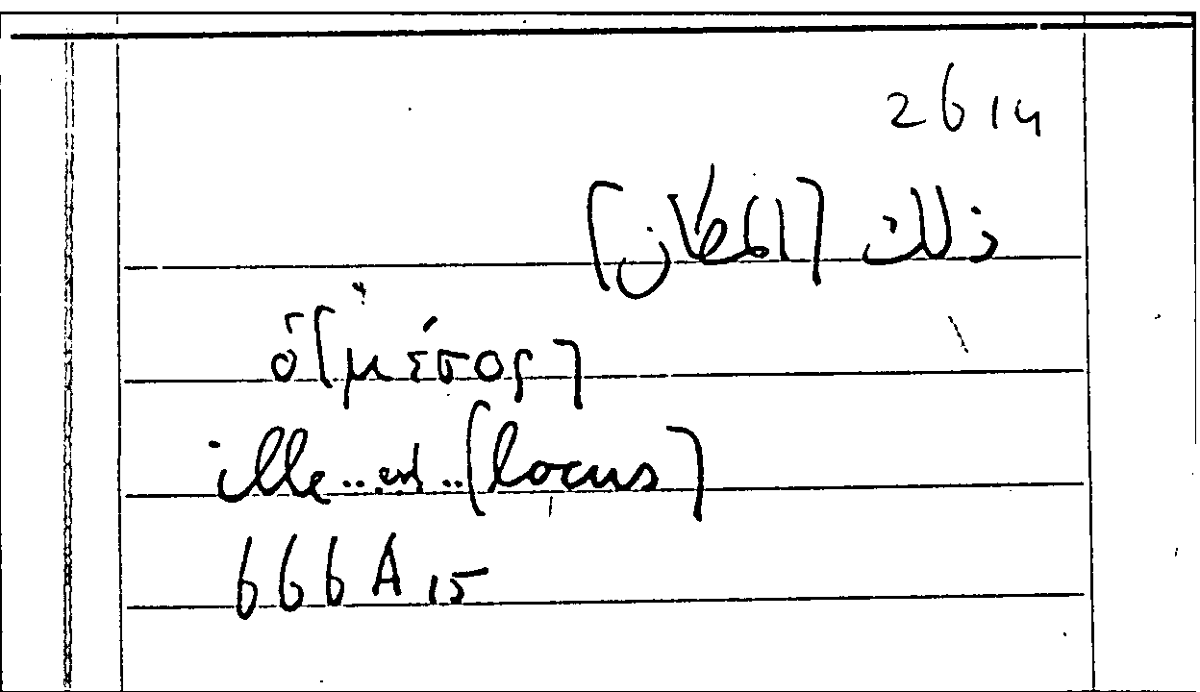 26 14
ذلك [المكان]
ὁ [μέσος]
ille..est..[locus]
666 A 15